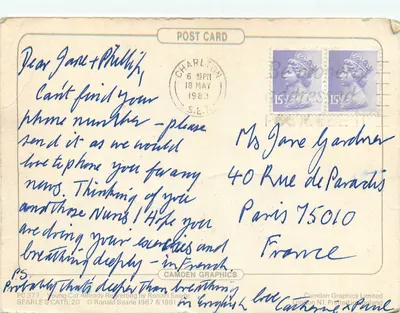 POST CARD
CHARLTON
6 PM
18 MAY
1983
S.E.7
15½
15½
Dear Jane + Phillip,
Can't find your
phone number – please
send it as we would
love to phone you for any
news. Thinking of you
and those Nuns! Hope you
are doing your exercises and
breathing deeply – in French
P.S.
Probably thats deeper than breathing
in English
love
Catherine & Paul
Ms Jane Gardner
40 Rue de Paradis
Paris 75010
France
CAMDEN GRAPHICS
PC 377 Young Cat Already Regretting by Ronald Searle
SEARLE'S CATS: 20 © Ronald Searle 1967 &
Camden Graphics Limited
London N1